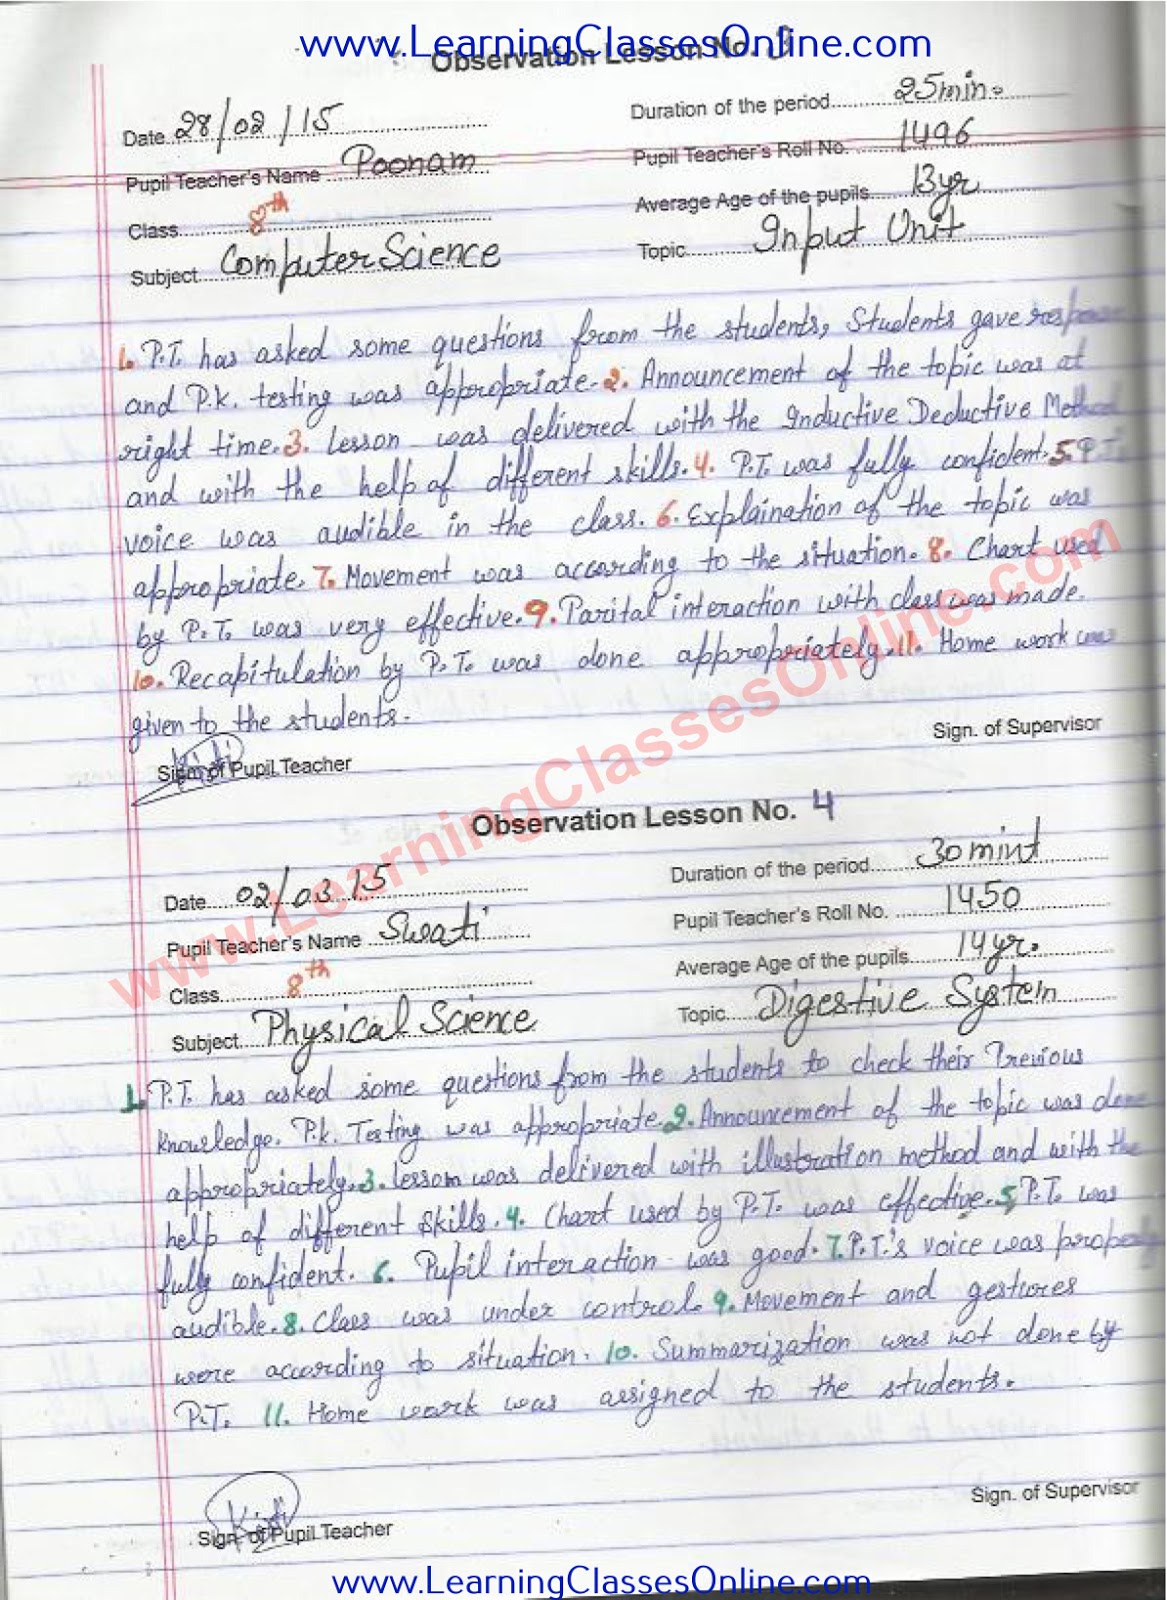 www.LearningClassesOnline.com
Observation Lesson No. 3
Date 28/02/15
Duration of the period 25min.
Pupil Teacher's Name Poonam
Pupil Teacher's Roll No. 1496
Class 8th
Average Age of the pupils 13yr
Subject Computer Science
Topic Input Unit
1. P.T. has asked some questions from the students, Students gave response
and P.k. testing was appropriate. 2. Announcement of the topic was at
right time. 3. lesson was delivered with the Inductive Deductive Method
and with the help of different skills. 4. P.T. was fully confident. 5. P.T.'s
voice was audible in the class. 6. Explaination of the topic was
appropriate. 7. Movement was according to the situation. 8. Chart used
by P.T. was very effective. 9. Parital interaction with class was made.
10. Recapitulation by P.T. was done appropriately. 11. Home work was
given to the students.
Sign. of Supervisor
Sign. of Pupil Teacher
www.LearningClassesOnline.com
Observation Lesson No. 4
Date 02/03/15
Duration of the period 30 mint
Pupil Teacher's Name Swati
Pupil Teacher's Roll No. 1450
Class 8th
Average Age of the pupils 14yr.
Subject Physical Science
Topic Digestive System
1. P.T. has asked some questions from the students to check their Previous
knowledge. P.k. Testing was appropriate. 2. Announcement of the topic was done
appropriately. 3. lesson was delivered with illustration method and with the
help of different skills. 4. Chart used by P.T. was effective. 5. P.T. was
fully confident. 6. Pupil interaction was good. 7. P.T.'s voice was properly
audible. 8. Class was under control. 9. Movement and gestures
were according to situation. 10. Summarization was not done by
P.T. 11. Home work was assigned to the students.
Sign. of Supervisor
Sign. of Pupil Teacher
www.LearningClassesOnline.com